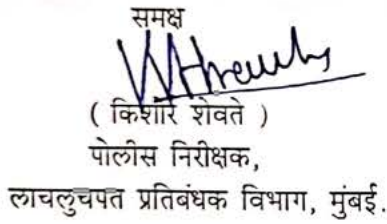 समक्ष
( किशोर शेवते )
पोलीस निरीक्षक,
लाचलुचपत प्रतिबंधक विभाग, मुंबई.